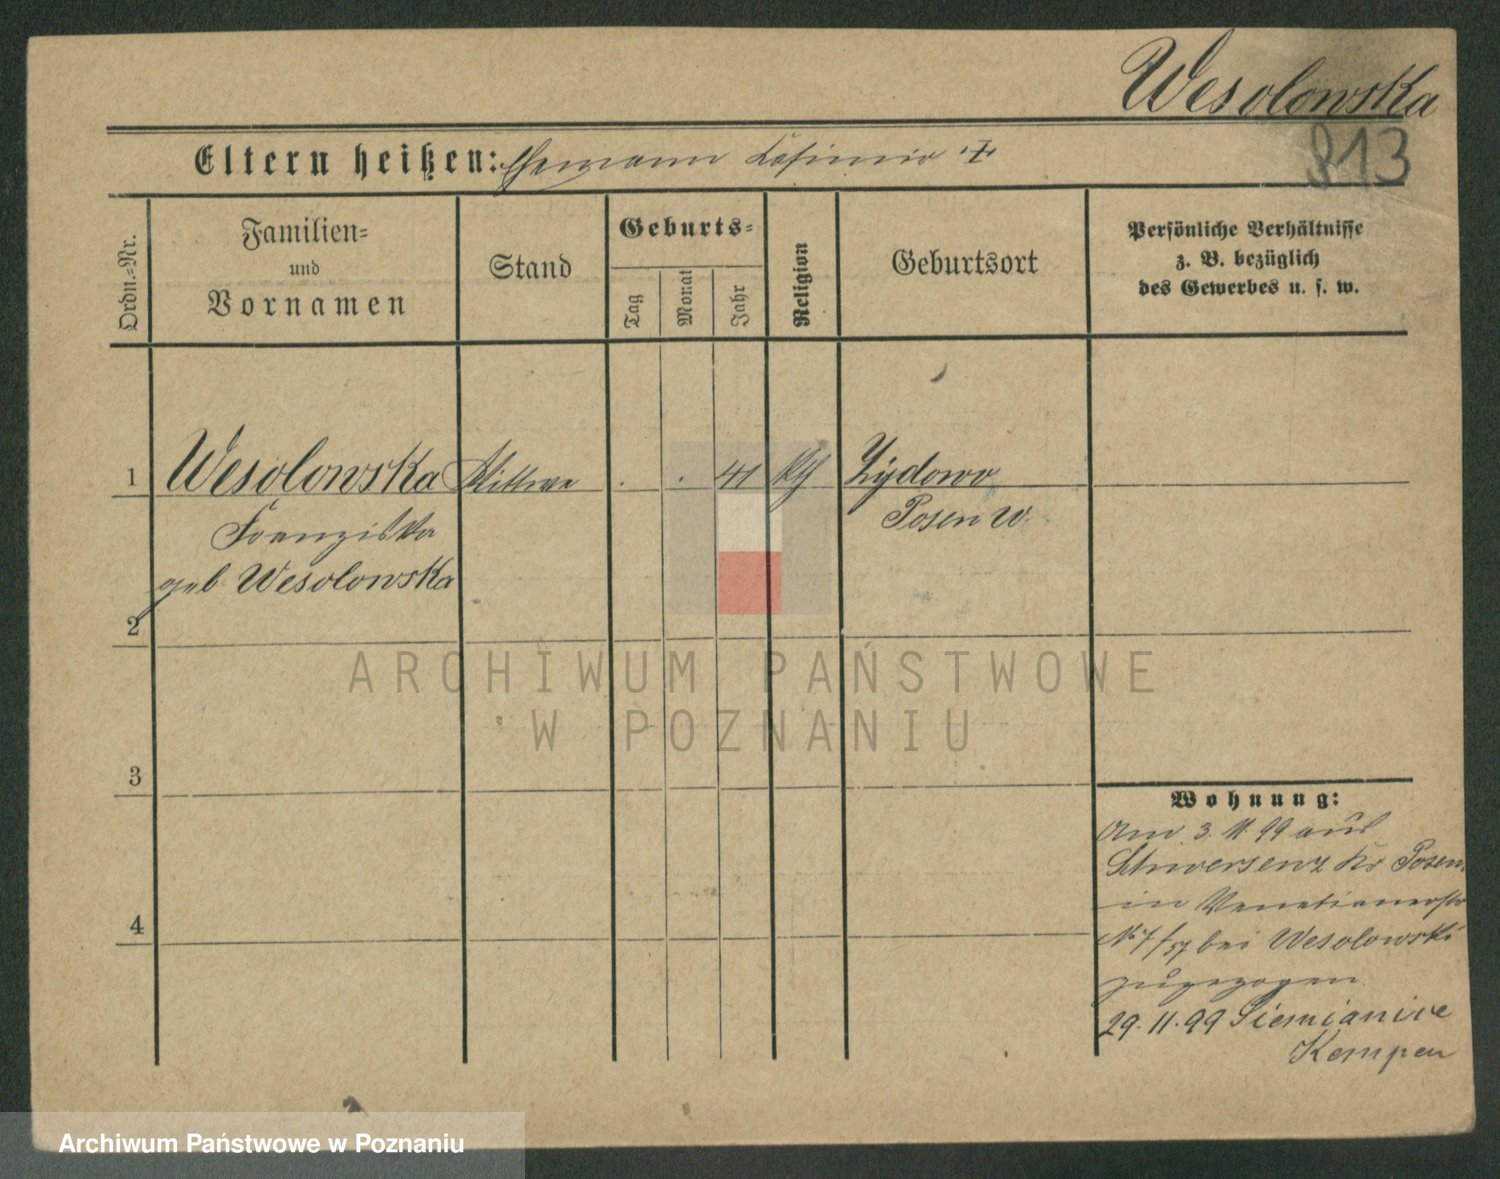 Wesolowska
813
Eltern heißen: Ehemann Casimir +
Ordn.-Nr.
Familien-
und
Vornamen
Stand
Geburts-
Tag
Monat
Jahr
Religion
Geburtsort
Persönliche Verhältnisse
z. B. bezüglich
des Gewerbes u. s. w.
1 Wesolowska Wittwe . . 41 Kth Zydowo
Franziska Posen W.
geb Wesolowska
2
3
4
Wohnung:
Am 3. 11. 99 aus
Schwersenz Kr Posen,
in Venetianerstr
No 7/57 bei Wesolowski
zugezogen
29. 11. 99 Siemianice
Kempen
ARCHIWUM PAŃSTWOWE
W POZNANIU
Archiwum Państwowe w Poznaniu